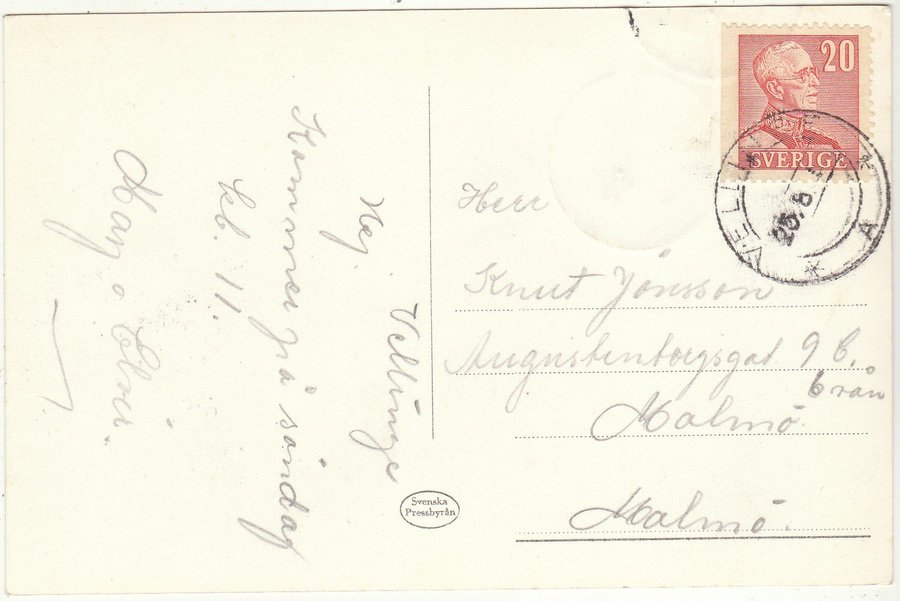 Hej.
Vellinge
Kommer på söndag
kl. 11.
Maj o Elver.
Svenska
Pressbyrån
20
SVERIGE
VELLINGE
A
25.8
Herr
Knut Jönsson
Augustenborgsgat. 9 C.
6 vån
Malmö.
Malmö.